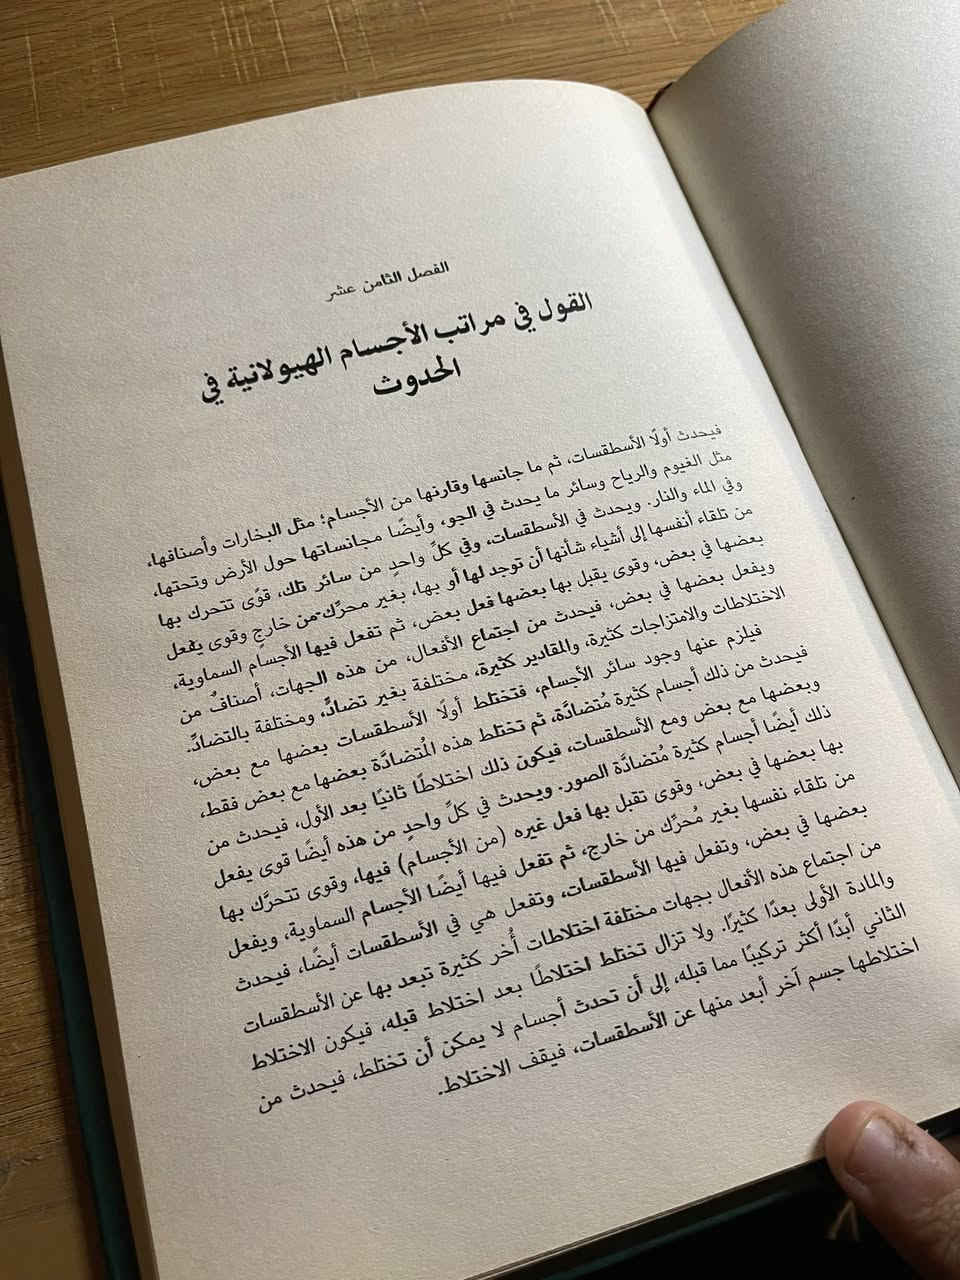 الفصل الثامن عشر
القول في مراتب الأجسام الهيولانية في
الحدوث
فيحدث أولًا الأسطقسات، ثم ما جانسها وقارنها من الأجسام؛ مثل البخارات وأصنافها،
مثل الغيوم والرياح وسائر ما يحدث في الجو، وأيضًا مجانساتها حول الأرض وتحتها،
وفي الماء والنار. ويحدث في الأسطقسات، وفي كلِّ واحدٍ من سائر تلك، قوًى تتحرك بها
من تلقاء أنفسها إلى أشياء شأنها أن توجد لها أو بها، بغير محرِّك من خارجٍ وقوى يفعل
بعضها في بعض، وقوى يقبل بها بعضها فعل بعض، ثم تفعل فيها الأجسام السماوية،
ويفعل بعضها في بعض، فيحدث من اجتماع الأفعال، من هذه الجهات، أصنافٌ من
الاختلاطات والامتزاجات كثيرة، والمقادير كثيرة، مختلفة بغير تضادٍّ، ومختلفة بالتضادِّ.
فيلزم عنها وجود سائر الأجسام، فتختلط أولًا الأسطقسات بعضها مع بعض،
فيحدث من ذلك أجسام كثيرة مُتضادَّة، ثم تختلط هذه المُتضادَّة بعضها مع بعض فقط،
وبعضها مع بعض ومع الأسطقسات، فيكون ذلك اختلاطًا ثانيًا بعد الأول، فيحدث من
ذلك أيضًا أجسام كثيرة مُتضادَّة الصور. ويحدث في كلِّ واحدٍ من هذه أيضًا قوى يفعل
بها بعضها في بعض، وقوى تقبل بها فعل غيره (من الأجسام) فيها، وقوى تتحرَّك بها
من تلقاء نفسها بغير مُحرِّك من خارج، ثم تفعل فيها أيضًا الأجسام السماوية، ويفعل
بعضها في بعض، وتفعل فيها الأسطقسات، وتفعل هي في الأسطقسات أيضًا، فيحدث
من اجتماع هذه الأفعال بجهات مختلفة اختلاطات أُخر كثيرة تبعد بها عن الأسطقسات
والمادة الأولى بعدًا كثيرًا. ولا تزال تختلط اختلاطًا بعد اختلاط قبله، فيكون الاختلاط
الثاني أبدًا أكثر تركيبًا مما قبله، إلى أن تحدث أجسام لا يمكن أن تختلط، فيحدث من
اختلاطها جسم آخر أبعد منها عن الأسطقسات، فيقف الاختلاط.